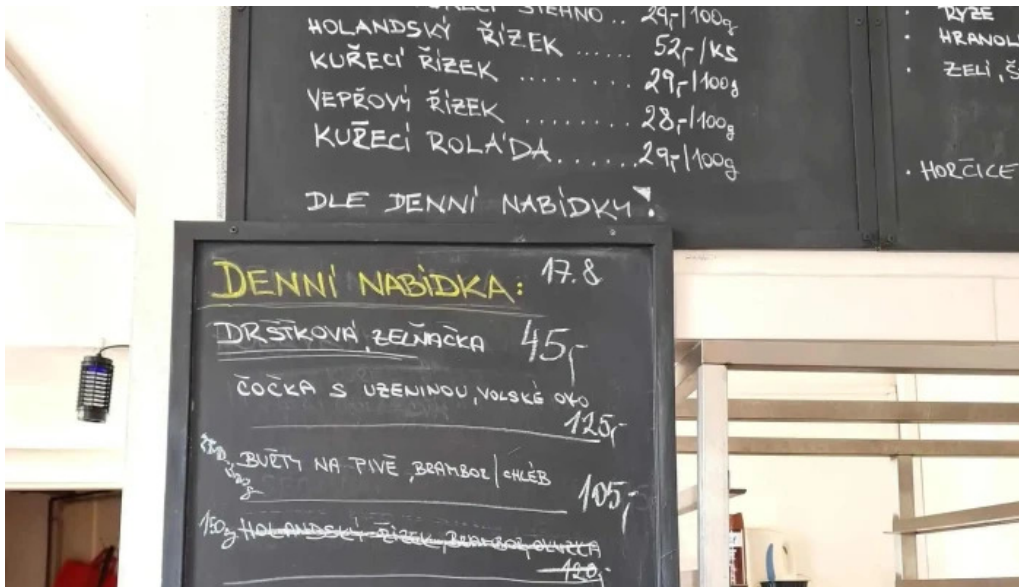 STEHNO .. 29,-/100g
HOLANDSKÝ ŘÍZEK ...... 52,-/KS
KUŘECÍ ŘÍZEK ......... 29,-/100g
VEPŘOVÝ ŘÍZEK ........ 28,-/100g
KUŘECÍ ROLÁDA ...... 29,-/100g
DLE DENNÍ NABÍDKY!
• RÝŽE
• HRANOL
• ZELÍ, Š
• HORČICE
DENNÍ NABÍDKA: 17.8
DRŠŤKOVÁ, ZELŇAČKA 45,-
ČOČKA S UZENINOU, VOLSKÉ OKO
125,-
BUŘTY NA PIVĚ, BRAMBOR/CHLÉB
105,-
150g HOLANDSKÝ ŘÍZEK, BRAMBOR, OKURKA
120,-